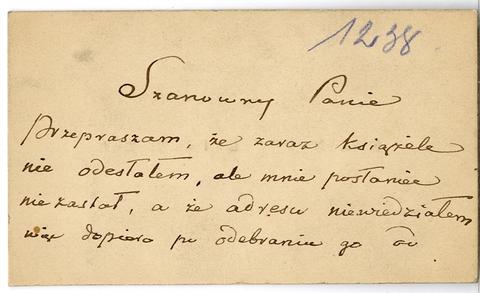 1238
Szanowny Panie
Przepraszam, że zaraz książek
nie odesłałem, ale mnie posłaniec
nie zastał, a że adresu niewiedziałem
więc dopiero po odebraniu go